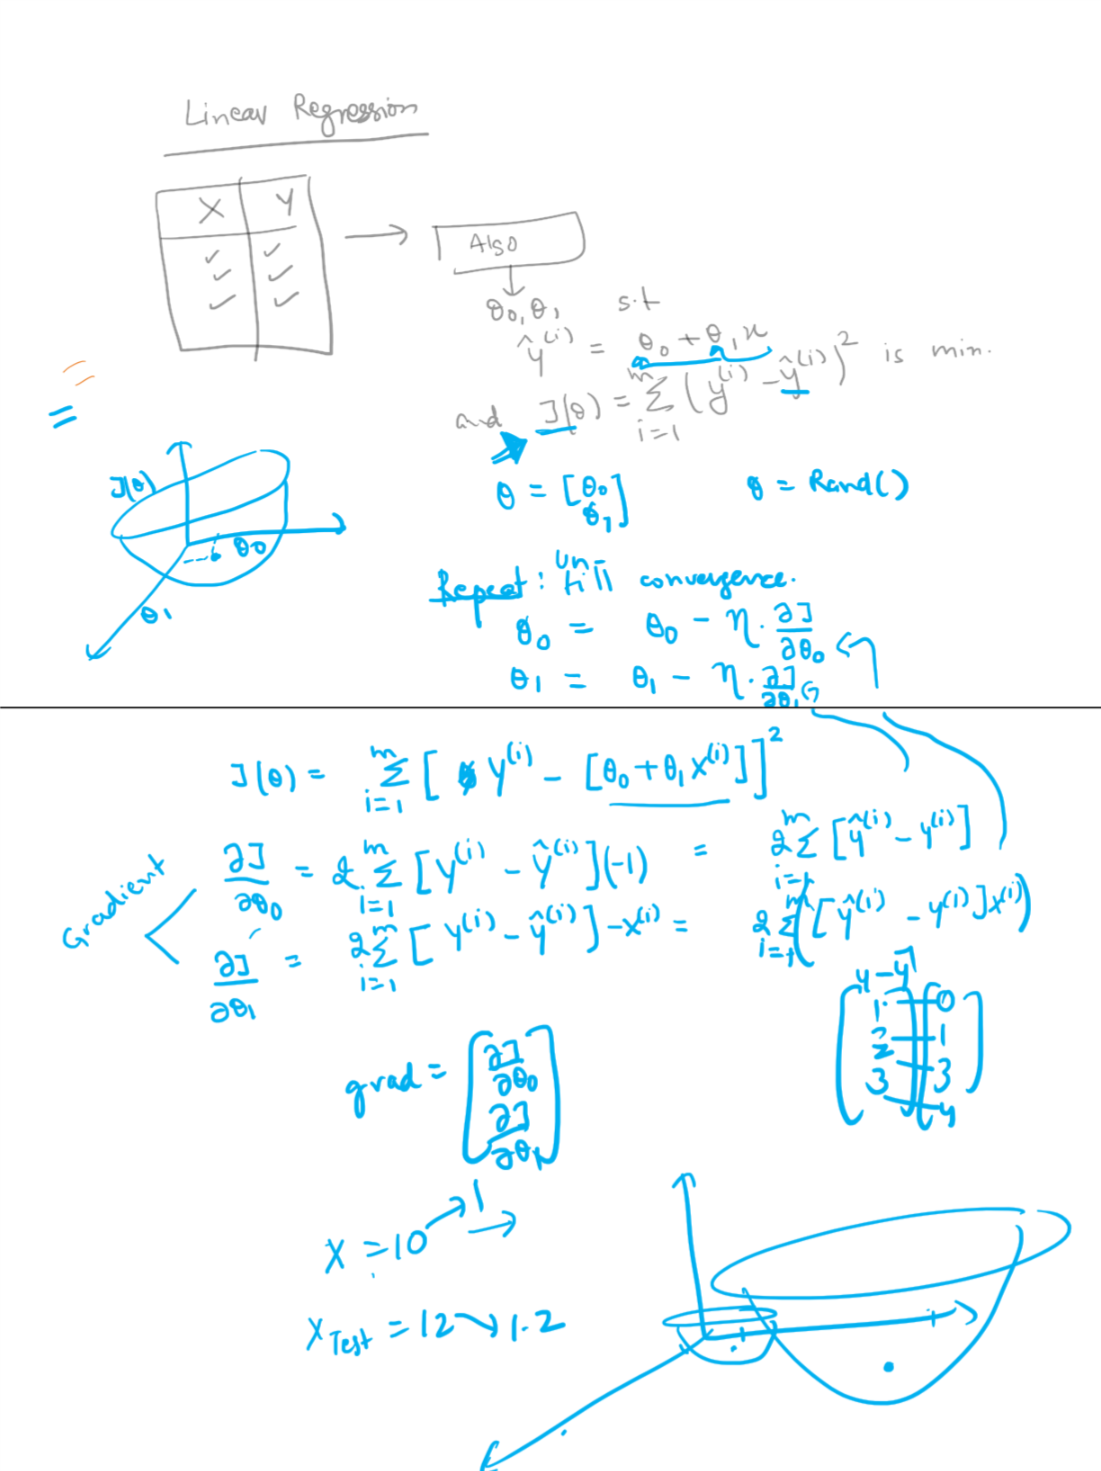 Linear Regression
X Y
Algo
θ₀, θ₁ s.t
ŷ⁽ⁱ⁾ = θ₀ + θ₁x
and J(θ) = Σᵢ₌₁ᵐ (y⁽ⁱ⁾ - ŷ⁽ⁱ⁾)² is min.
J(θ)
θ₀
θ₁
θ = [θ₀ θ₁]
θ = Rand()
Repeat : Until convergence.
θ₀ = θ₀ - η · ∂J/∂θ₀
θ₁ = θ₁ - η · ∂J/∂θ₁
J(θ) = Σᵢ₌₁ᵐ [ y⁽ⁱ⁾ - [θ₀ + θ₁ x⁽ⁱ⁾]]²
Gradient
∂J/∂θ₀ = 2 Σᵢ₌₁ᵐ [y⁽ⁱ⁾ - ŷ⁽ⁱ⁾](-1) = 2 Σᵢ₌₁ᵐ [ŷ⁽ⁱ⁾ - y⁽ⁱ⁾]
∂J/∂θ₁ = 2 Σᵢ₌₁ᵐ [y⁽ⁱ⁾ - ŷ⁽ⁱ⁾] -x⁽ⁱ⁾ = 2 Σᵢ₌₁ᵐ ([ŷ⁽ⁱ⁾ - y⁽ⁱ⁾]x⁽ⁱ⁾)
1 0
2 1
3 3
4
grad = [∂J/∂θ₀ ∂J/∂θ₁]
X = 10 → 1
X Test = 12 → 1.2